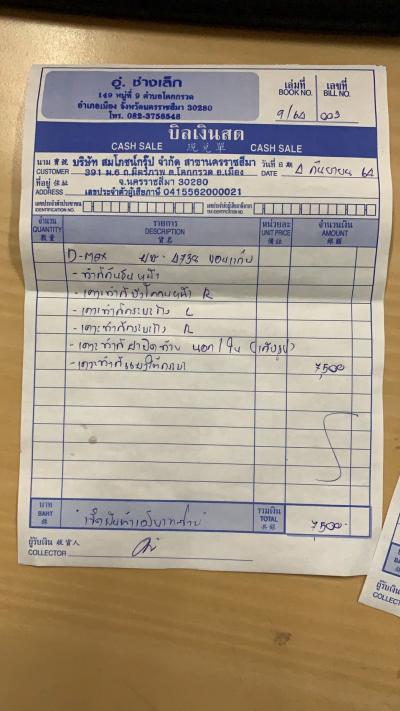 อู่. ช่างเล็ก
149 หมู่ที่ 9 ตำบลโคกกรวด
อำเภอเมือง จังหวัดนครราชสีมา 30280
โทร. 082-3756548
เล่มที่
BOOK NO.
เลขที่
BILL NO.
9/64
003
บิลเงินสด
CASH SALE 現兑單 CASH SALE
นาม 寶號 บริษัท สมโภชน์กรุ๊ป จำกัด สาขานครราชสีมา
CUSTOMER 391 ม.6 ถ.มิตรภาพ ต.โคกกรวด อ.เมือง
วันที่ 日期
DATE 4 กันยายน 64
ที่อยู่ 住址 จ.นครราชสีมา 30280
ADDRESS เลขประจำตัวผู้เสียภาษี 0415562000021
เลขประจำตัวประชาชน
IDENTIFICATION NO.
เลขประจำตัวผู้เสียภาษีอากร
TAX IDENTIFICATION NO.
จำนวน
QUANTITY
數量
รายการ
DESCRIPTION
貨名
หน่วยละ
UNIT PRICE
จำนวนเงิน
AMOUNT
D-max ขอนแก่น
- ทำสีกันชนหน้า
- R
- เคาะทำสีกระบะข้าง L
- เคาะทำสีกระบะข้าง R
- เคาะทำสีฝาปิดท้าย
- เคาะทำสี 7,500
บาท
BAHT
銖
เจ็ดพันห้าร้อยบาทถ้วน
รวมเงิน
TOTAL
7,500
ผู้รับเงิน 收貨人
COLLECTOR
ผู้รับเงิน
COLLECTOR